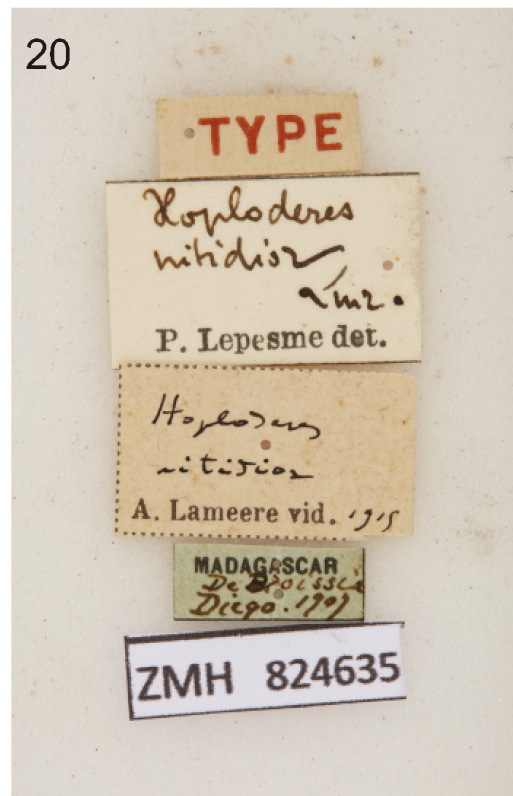 20
TYPE
Hoploderes
nitidior
Lmr.
P. Lepesme det.
Hoploderes
nitidior
A. Lameere vid. 1915
MADAGASCAR
De
Diego. 1909
ZMH 824635